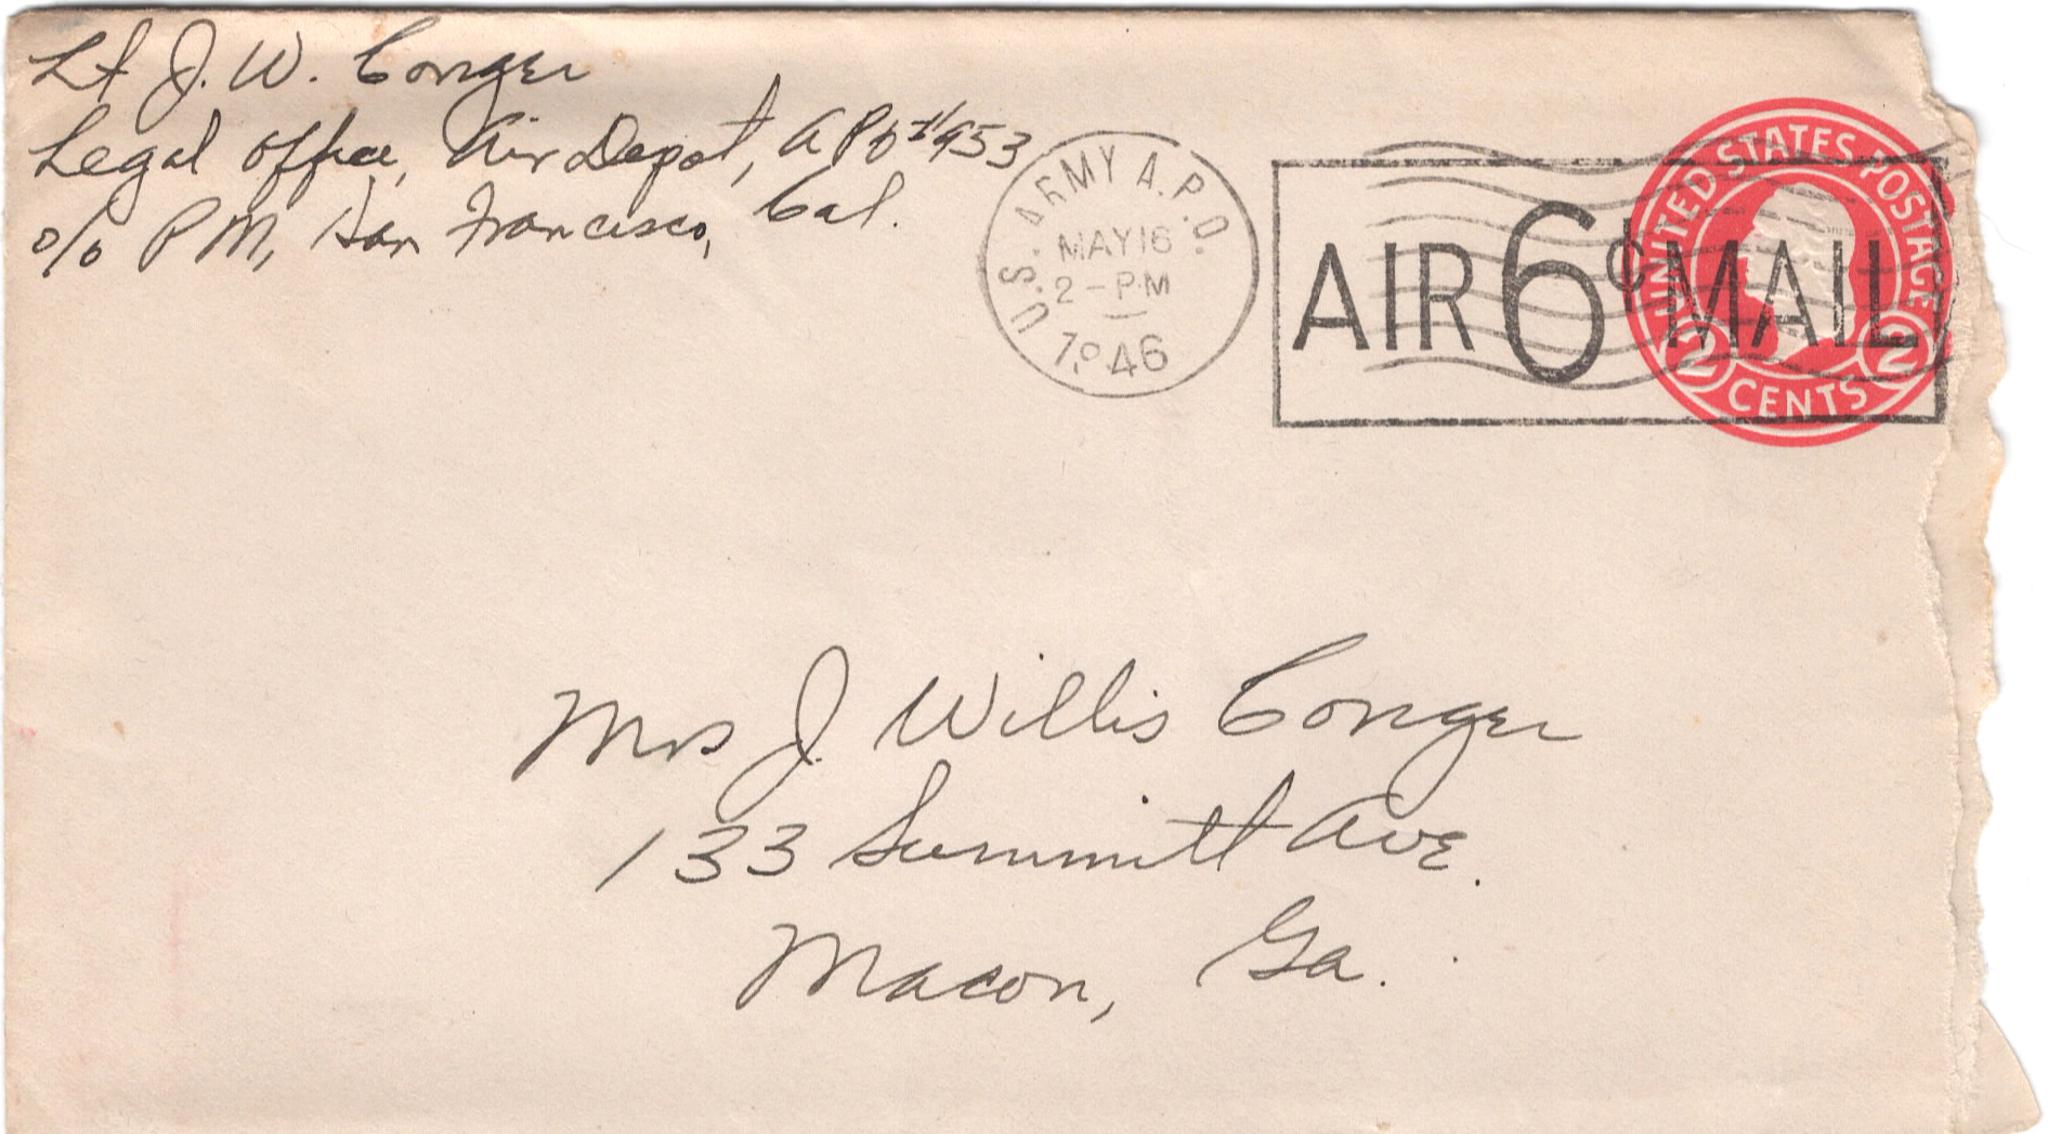 Lt J. W. Conger
Legal Office, Air Depot, APO #953
c/o PM, San Francisco, Cal.
U.S. ARMY A.P.O.
MAY 16
2 - PM
1946
AIR 6¢ MAIL
UNITED STATES POSTAGE
2 CENTS 2
Mrs J. Willis Conger
133 Summitt Ave.
Macon, Ga.